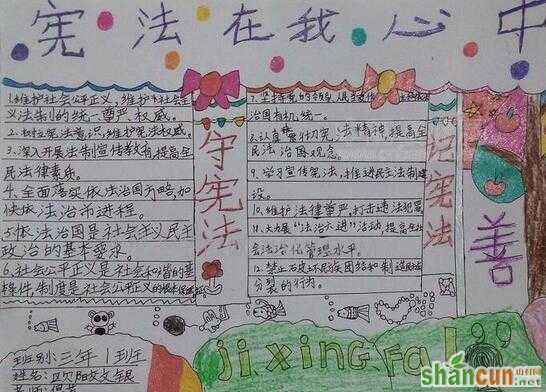 宪法在我心中
1.维护社会公平正义,维护社会主
义法制的统一尊严权威。
2.树立宪法意识,维护宪法权威。
3.深入开展法制宣传教育,提高全
民法律素乐。
4.全面落实依法治国方略,加
快依法治市进程。
5.依法治国是社会主义民主
政治的基本要求。
6.社会公平正义是社会和谐的基
本条件,制度是社会公平正义的根本保证
守宪法
7.坚持党的领导,人民
治国有机统一。
8.认真贯彻宪法精神,提高全
民法治国观念。
9.学习宣传宪法,推进民主法制建
设。
10.维护法律尊严,打击违法犯罪
11.大力展“法治六进”活动,提高全社
会法治化管理水平。
12.禁止破坏民族团结和制造民族
分裂的行为。
记宪法
善
班别:三年1班
姓名:欧阳文银
老师:
jixingFa
shancun.net